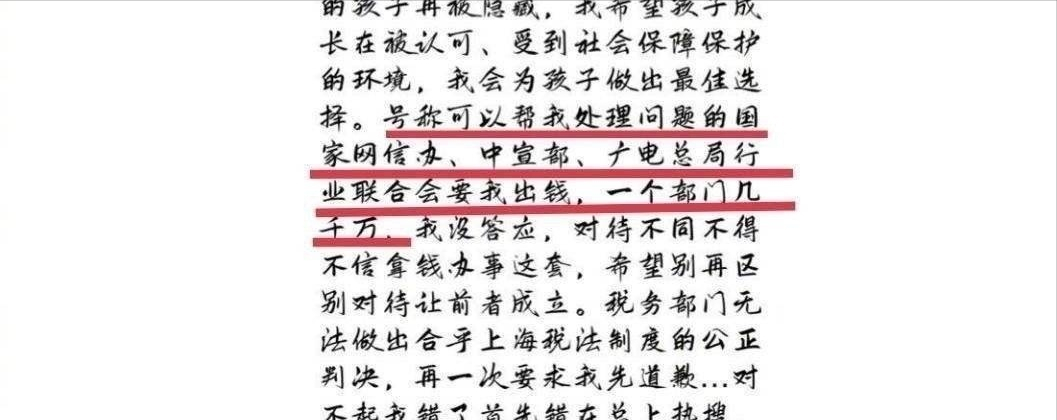 的孩子再被隐藏，我希望孩子成
长在被认可、受到社会保障保护
的环境，我会为孩子做出最佳选
择。号称可以帮我处理问题的国
家网信办、中宣部、广电总局行
业联合会要我出钱，一个部门几
千万，我没答应，对待不同不得
不信拿钱办事这套，希望别再区
别对待让前者成立。税务部门无
法做出合乎上海税法制度的公正
判决，再一次要求我先道歉...对
不起我错了首先错在总上热搜